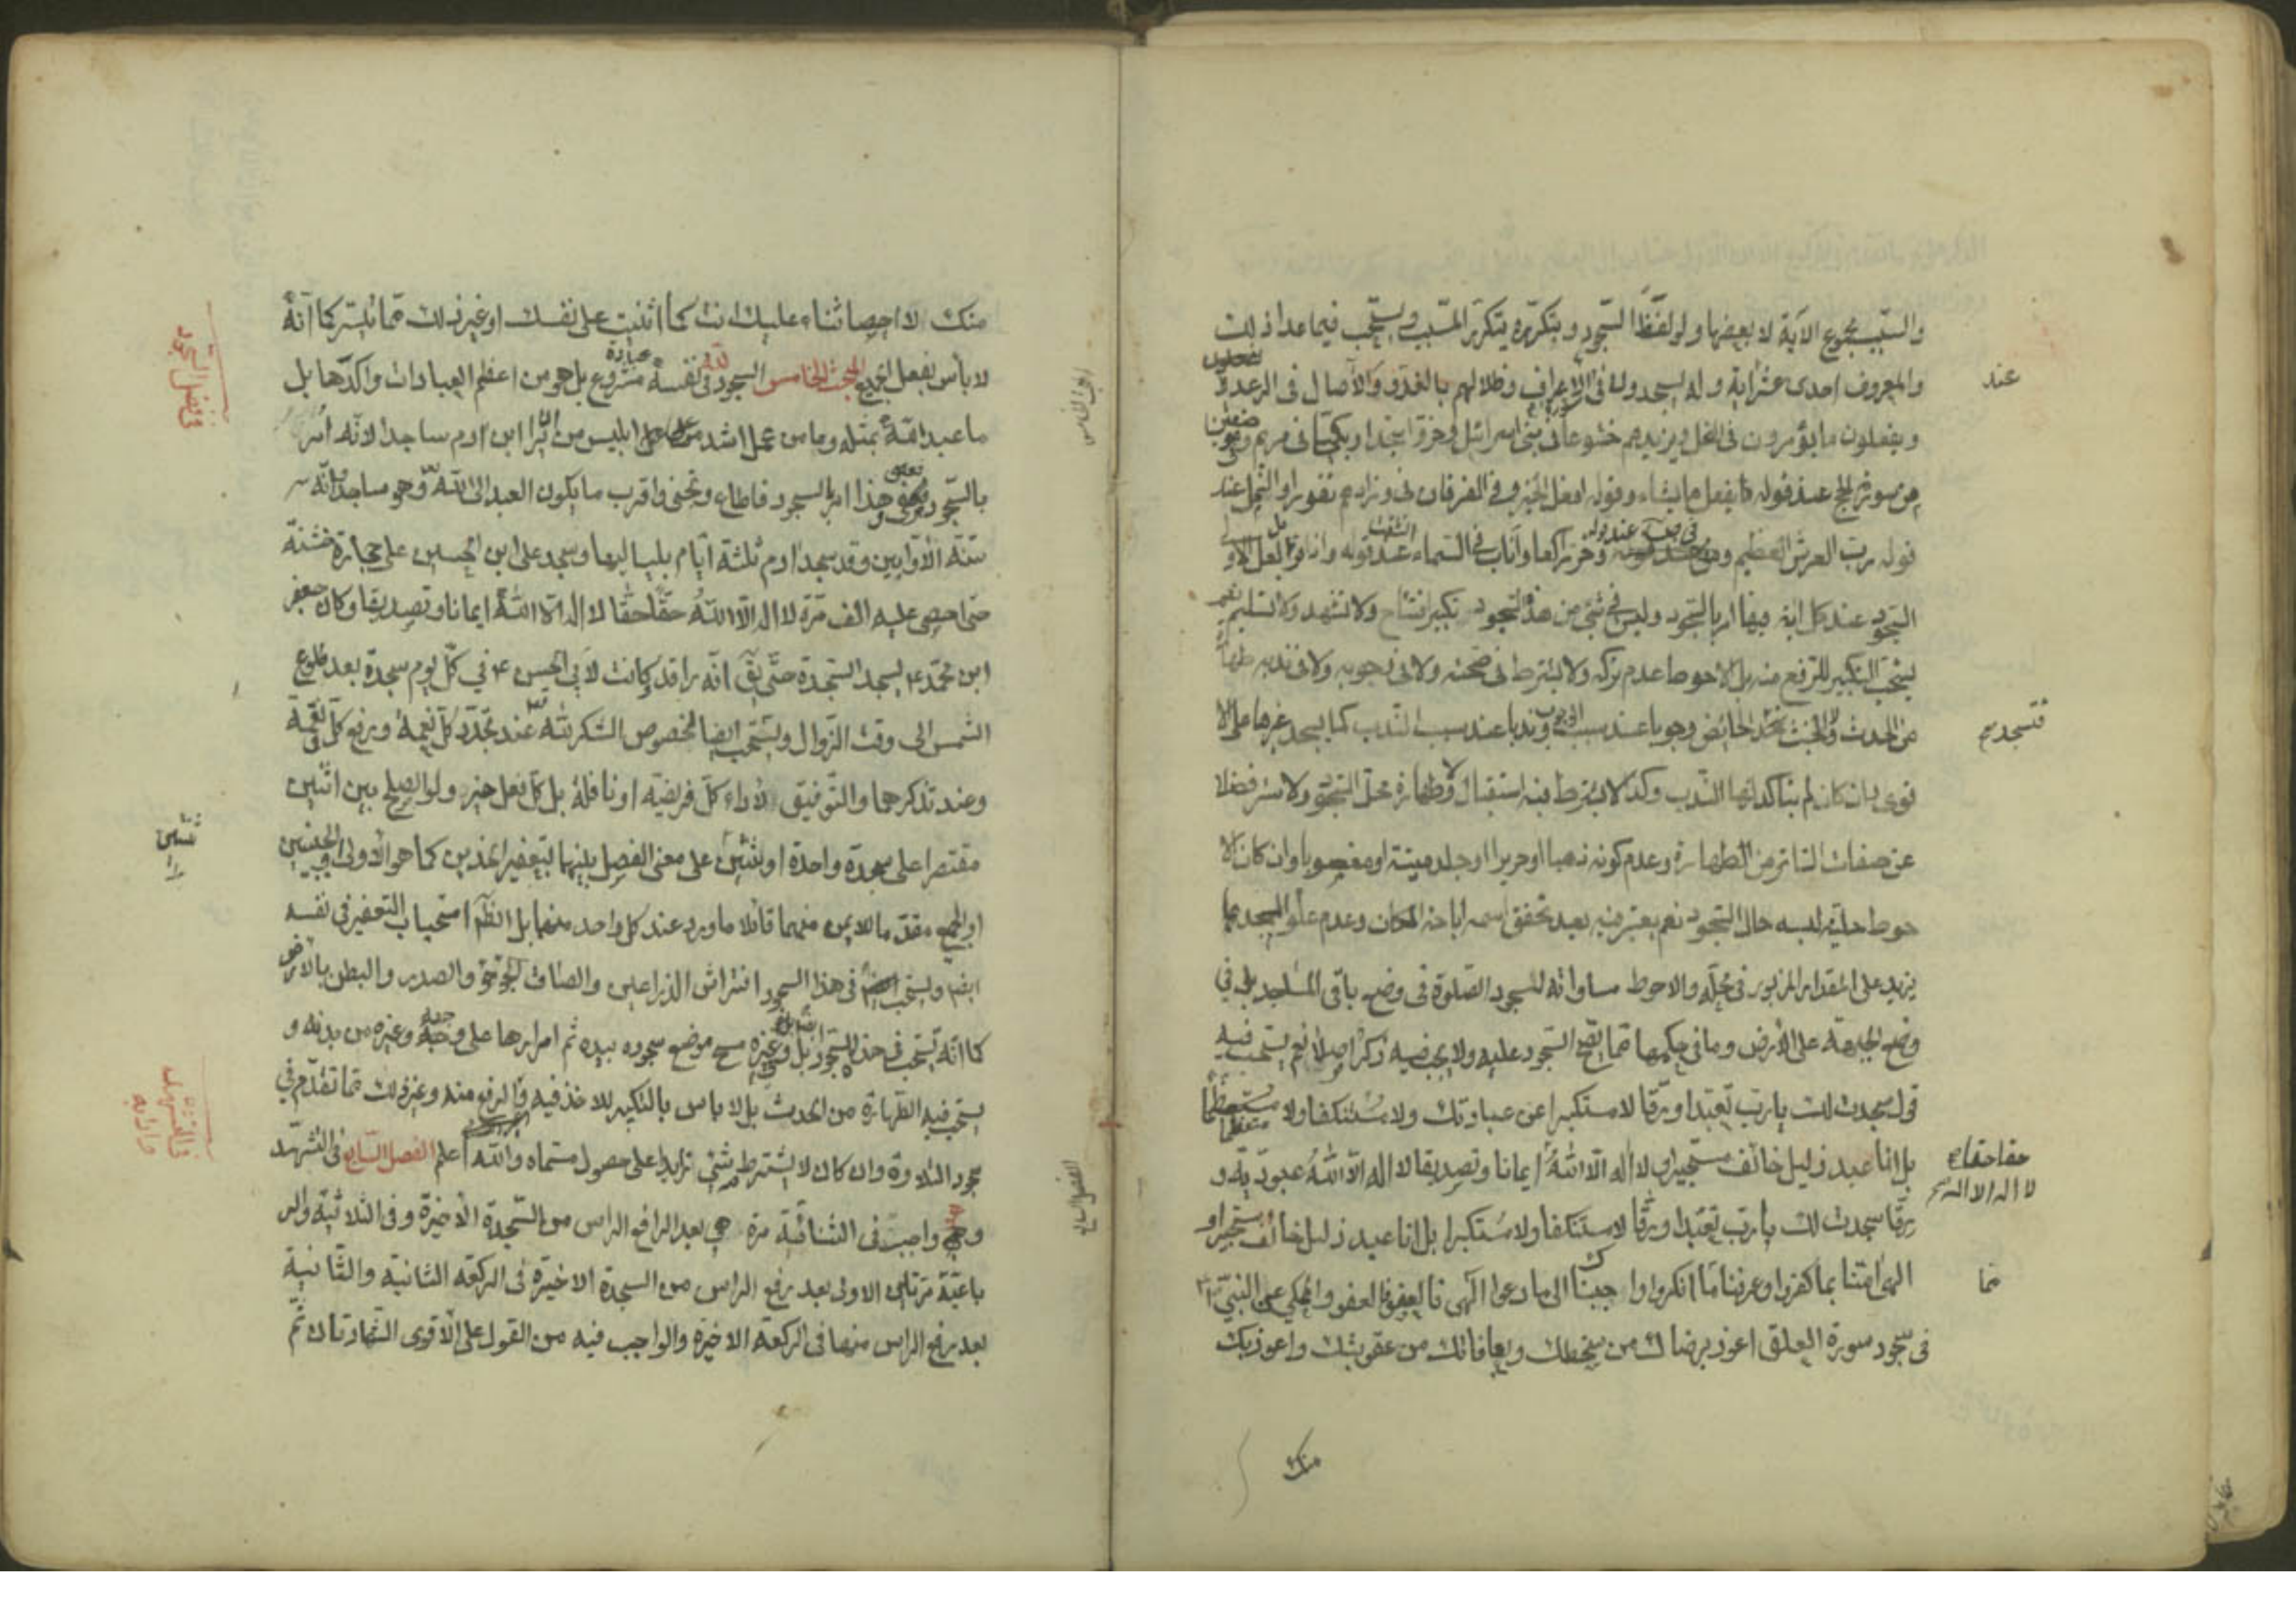 والسبب مجموع الآية لا بعضها ولو لفظ السجود وبتكرره يتكرر المسبب ويستحب فيما عدا ذلك
عند
والمعروف احدى عشر آية وله يسجدون في الاعراف وظلالهم بالغدو والآصال في الرعد
ويفعلون ما يؤمرون في النحل ويزيدهم خشوعا في بني اسرائيل وخروا سجدا وبكيا في مريم
عند قوله يفعل ما يشاء وقوله افعلوا الخير وفي الفرقان وزادهم نفورا والنمل عند
قوله رب العرش العظيم وخر راكعا وأناب في السماء عند قوله واذا بل الاولى
السجود عند كل آية فيها امر بالسجود وليس في شئ من هذه السجود تكبير افتتاح ولا تشهد ولا تسليم نعم
يستحب التكبير للرفع منه بل الاحوط عدم تركه ولا يشترط في صحته ولا في وجوبه ولا في ندبه طهارة
من الحدث والخبث الحائض وجوبا عند سبب الوجوب وندبا عند سبب الندب كما يسجد غيرها على الا
فتسجد
قوى وان كان لم يتأكد لها الندب وكذا لا يشترط فيه استقبال ولا طهارة محل السجود ولا ستر فضلا
عن صفات الساتر من الطهارة وعدم كونه ذهبا او حريرا او جلد ميتة او مغصوبا وان كان الا
حوط حلية لبسه حال السجود نعم يعتبر فيه بعد تحقق اسمه اباحة المكان وعدم علو المسجد بما
يزيد على المقدار المزبور في محله والاحوط مساواته لسجود الصلوة في وضع باقي المساجد بل في
وضع الجبهة على الارض وما في حكمها مما يصح السجود عليه ولا يجب فيه ذكر اصلا نعم يستحب فيه
قول سجدت لك يا رب تعبدا ورقا لا مستكبرا عن عبادتك ولا مستنكفا ولا مستعظما
بل انا عبد ذليل خائف مستجير او لا اله الا الله ايمانا وتصديقا لا اله الا الله عبودية و
حقا حقا
لا اله الا الله
رقا سجدت لك يا رب تعبدا ورقا لا مستنكفا ولا مستكبرا بل انا عبد ذليل خائف مستجير او
الهي آمنا بما كفروا وعرفنا ما انكروا واجبناك الى ما دعوا الهي فالعفو فالعفو والمحكي عن النبي
في سجود سورة العلق اعوذ برضاك من سخطك وبمعافاتك من عقوبتك واعوذ بك
منك
منك لا احصي ثناء عليك انت كما اثنيت على نفسك او غير ذلك مما تيسر كما انه
لا بأس بفعل الجميع المبحث الخامس السجود لله في نفسه عبادة مشروع بل هو من اعظم العبادات واكدها بل
ما عبد الله بمثله وما من عمل اشد على ابليس من ان يرى ابن آدم ساجدا لانه امر
بالسجود فعصى وهذا امر بالسجود فاطاع ونجى واقرب ما يكون العبد الى الله وهو ساجد وانه
سنة الاوابين وقد سجد آدم ثلثة ايام بلياليها وسجد علي ابن الحسين على حجارة خشنة
حتى احصي عليه الف مرة لا اله الا الله حقا حقا لا اله الا الله ايمانا وتصديقا وكان جعفر
ابن محمد يسجد السجدة حتى يق انه راقد وكانت لابي الحسن في كل يوم سجدة بعد طلوع
الشمس الى وقت الزوال ويستحب ايضا لخصوص الشكر لله عند تجدد كل نعمة ودفع كل نقمة
وعند تذكرهما والتوفيق لاداء كل فريضة او نافلة بل كل فعل خير ولو الصلح بين اثنين
مقتصرا على سجدة واحدة او ثنتين على معنى الفصل بينهما بتعفير الخدين كما هو الاولى او الجبينين
او الجمع مقدما للايمن منهما قائلا ما ورد عند كل واحد منهما بل الظ استحباب التعفير في نفسه
ايضا ويستحب في هذا السجود افتراش الذراعين والصاق الجؤجؤ والصدر والبطن بالارض
كما انه يستحب في هذا السجود بل وغيره مسح موضع سجوده بيده ثم امرارها على وجهه وغيره من بدنه و
يستحب فيه الطهارة من الحدث بل لا باس بالتكبير للاخذ فيه والرفع منه وغير ذلك مما تقدم في
سجود التلاوة وان كان لا يشترط بشئ زايد على حصول مسماه والله اعلم الفصل السابع في التشهد
وهو واجب في الثنائية مرة هي بعد الرافع الراس من السجدة الاخيرة وفي الثلاثية والر
باعية مرتان الاولى بعد رفع الراس من السجدة الاخيرة في الركعة الثانية والثانية
بعد رفع الراس منها في الركعة الاخيرة والواجب فيه من القول على الاقوى الشهادتان ثم